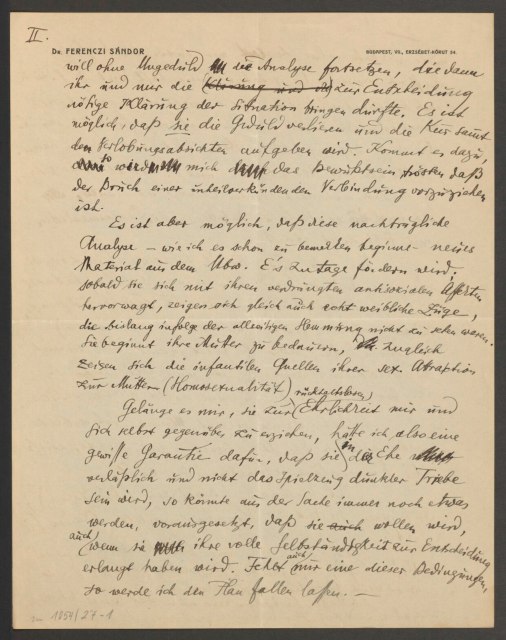 II.
Dr. FERENCZI SÁNDOR
BUDAPEST, VII., ERZSÉBET-KÖRUT 54.
will ohne Ungeduld die Analyse fortsetzen, die dann
ihr und nur die (Klärung und die) zur Entscheidung
nötige Klärung der Situation bringen dürfte. Es ist
möglich, daß sie die Geduld verlieren und die Kur samt
den Verlobungsabsichten aufgeben wird. Kommt es dazu,
so wird mich das Bewußtsein trösten daß
der Bruch einer unheilverkündenden Verbindung vorzuziehen
ist.
Es ist aber möglich, daß diese nachträgliche
Analyse – wie ich es schon zu bemerken beginne – neues
Material aus dem Ubw. E's zu Tage fördern wird;
sobald sie sich mit ihren verdrängten antisozialen Affekten
hervorwagt, zeigen sich gleich auch echt weibliche Züge,
die bislang infolge der allseitigen Hemmung nicht zu sehen waren.
Sie beginnt ihre Mutter zu bedauern, zugleich
zeigen sich die infantilen Quellen ihrer sex. Attraktion
zur Mutter (Homosexualität)
Gelänge es mir, sie zur rücksichtslosen Ehrlichkeit mir und
sich selbst gegenüber zu erziehen, hätte ich also eine
gewisse Garantie dafür, daß sie in der Ehe
verläßlich und nicht das Spielzeug dunkler Triebe
sein wird, so könnte aus der Sache immer noch etwas
werden, vorausgesetzt, daß sie auch wollen wird,
auch wenn sie ihre volle Selbständigkeit zur Entscheidung
erlangt haben wird. Fehlt auch nur eine dieser Bedingungen,
so werde ich den Plan fallen lassen. —
1054/27-1